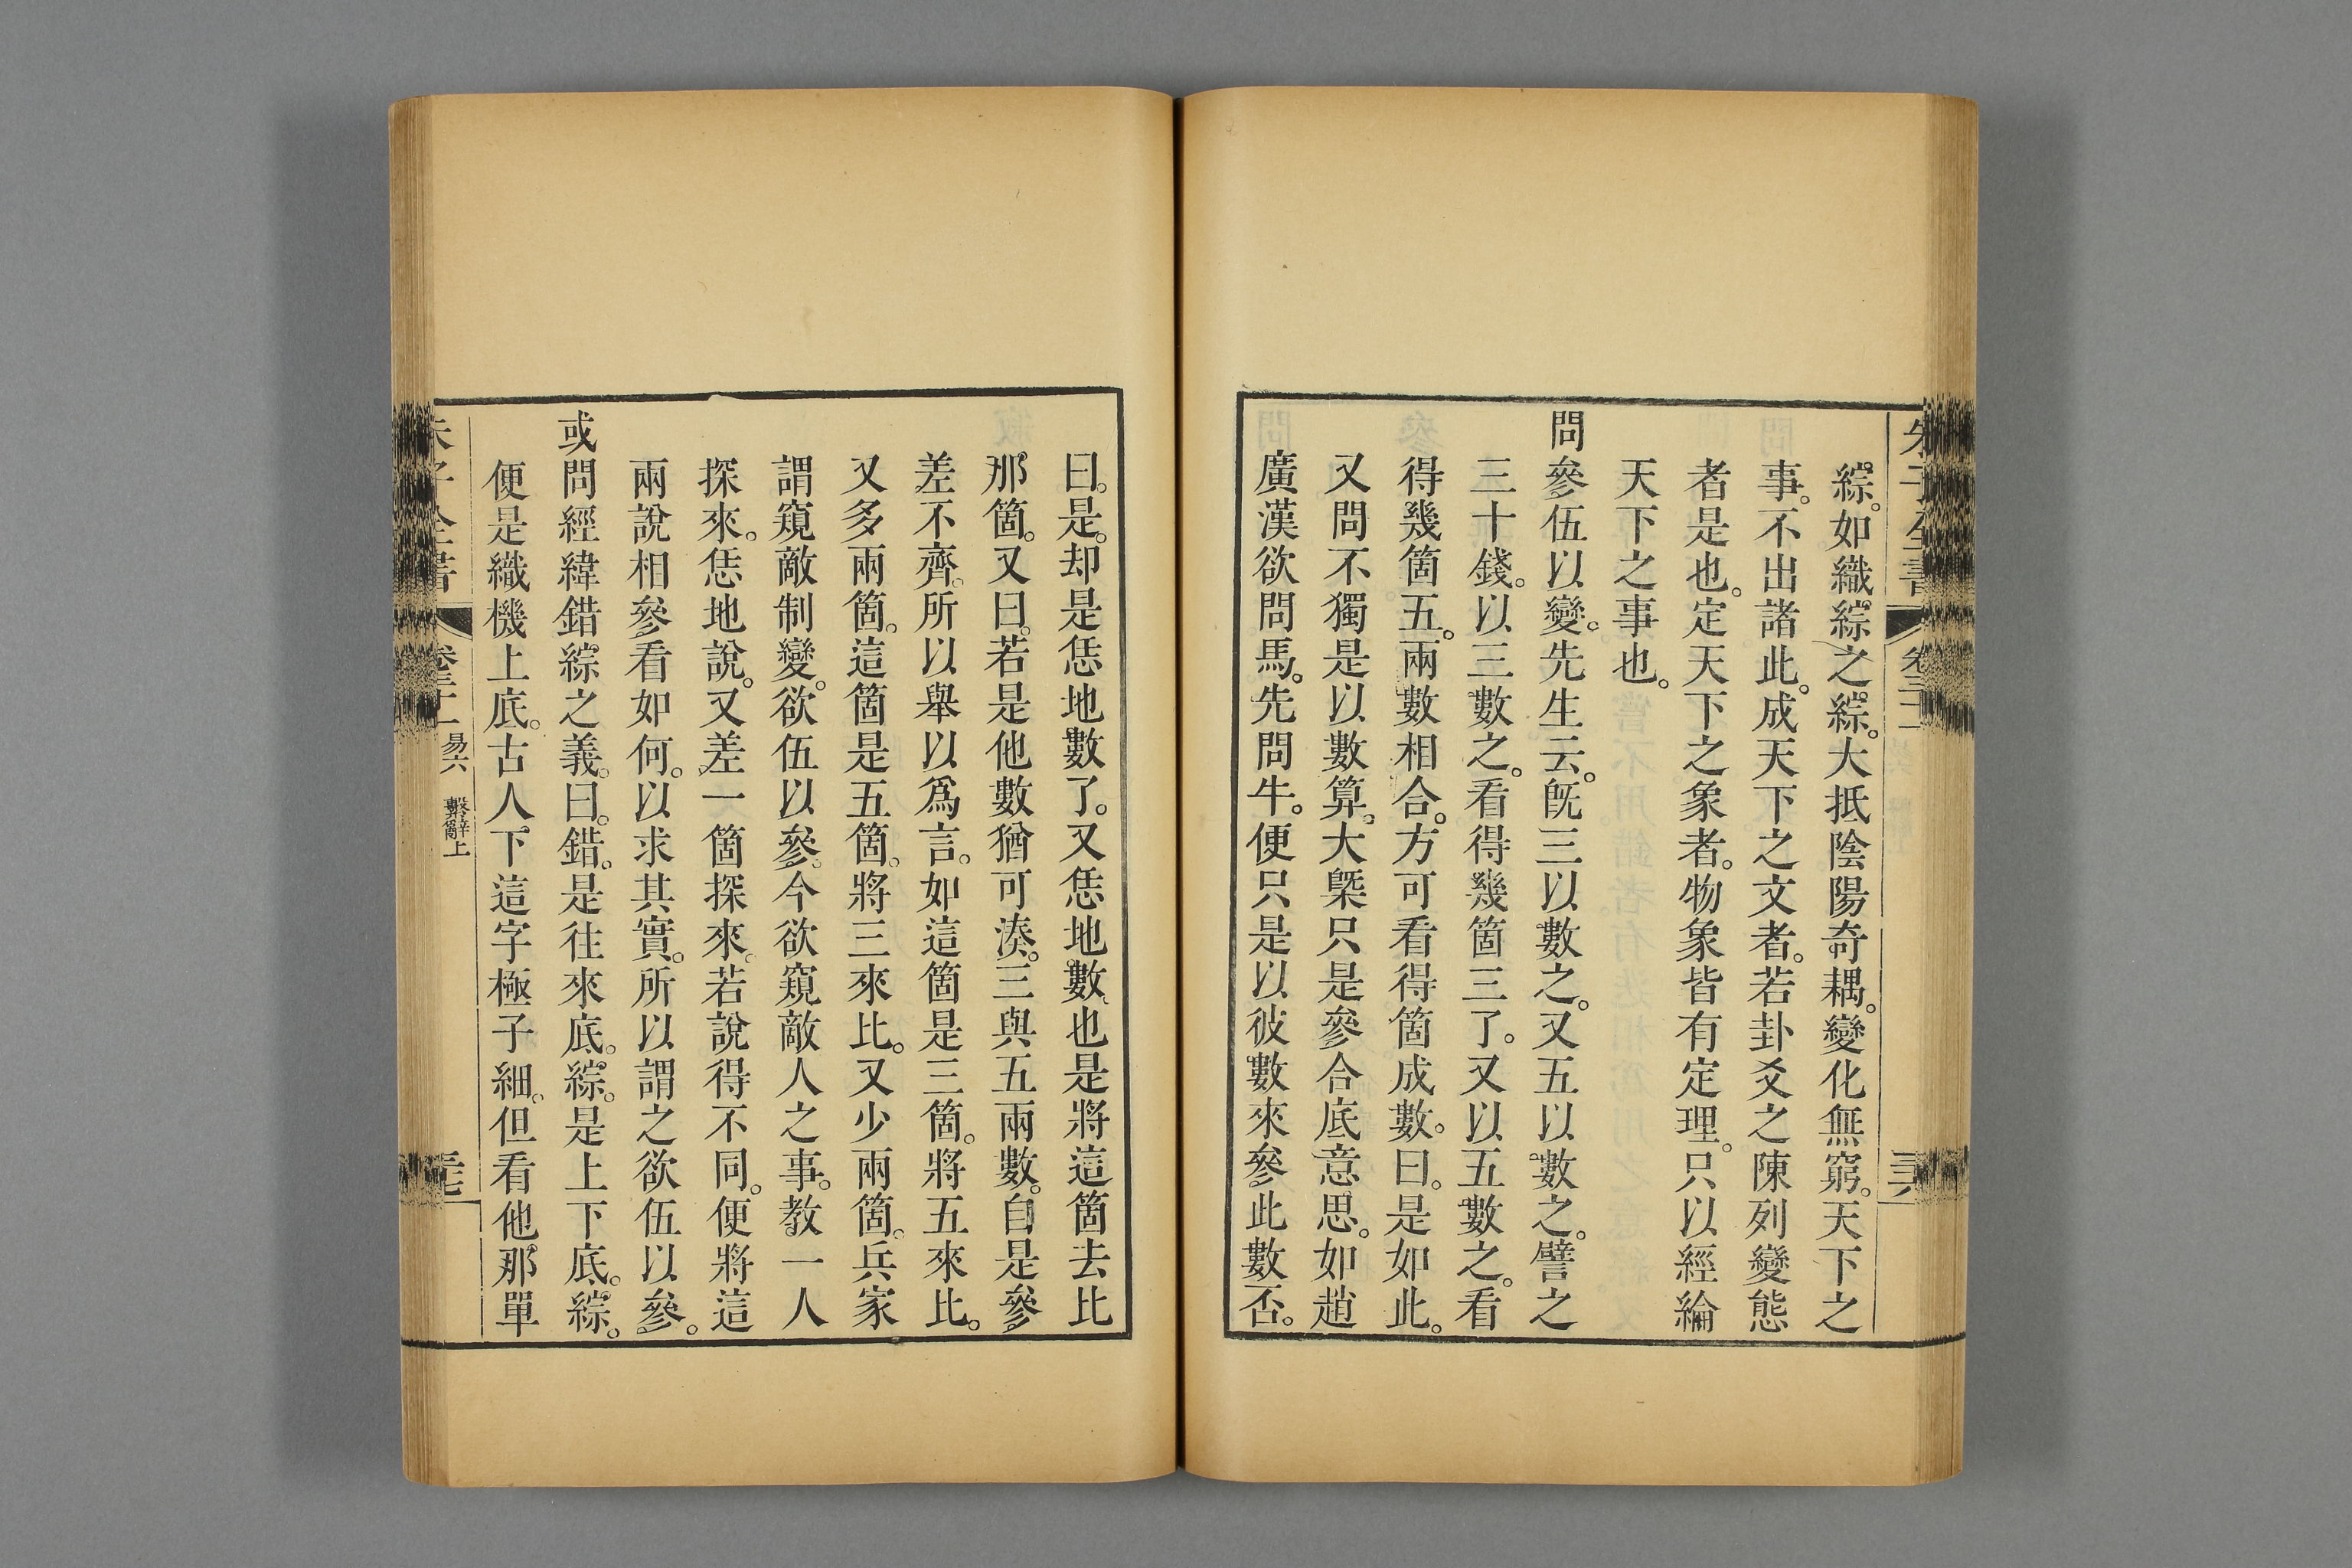 綜。如織綜之綜。大抵陰陽奇耦。變化無窮。天下之
事。不出諸此。成天下之文者。若卦爻之陳列變態
者是也。定天下之象者。物象皆有定理。只以經綸
天下之事也。
問參伍以變。先生云。旣三以數之。又五以數之。譬之
三十錢。以三數之。看得幾箇三了。又以五數之。看
得幾箇五。兩數相合。方可看得箇成數。曰。是如此。
又問不獨是以數算。大槩只是參合底意思。如趙
廣漢欲問馬。先問牛。便只是以彼數來參此數否。
曰。是。却是恁地數了。又恁地數。也是將這箇去比
那箇。又曰。若是他數猶可湊。三與五兩數。自是參
差不齊。所以舉以爲言。如這箇是三箇。將五來比。
又多兩箇。這箇是五箇。將三來比。又少兩箇。兵家
謂窺敵制變。欲伍以參。今欲窺敵人之事。教一人
探來。恁地說。又差一箇探來。若說得不同。便將這
兩說相參看如何。以求其實。所以謂之欲伍以參。
或問經緯錯綜之義。曰。錯。是往來底。綜。是上下底。綜。
便是織機上底。古人下這字極子細。但看他那單
朱子全書 卷三十一 易六 繫辭上